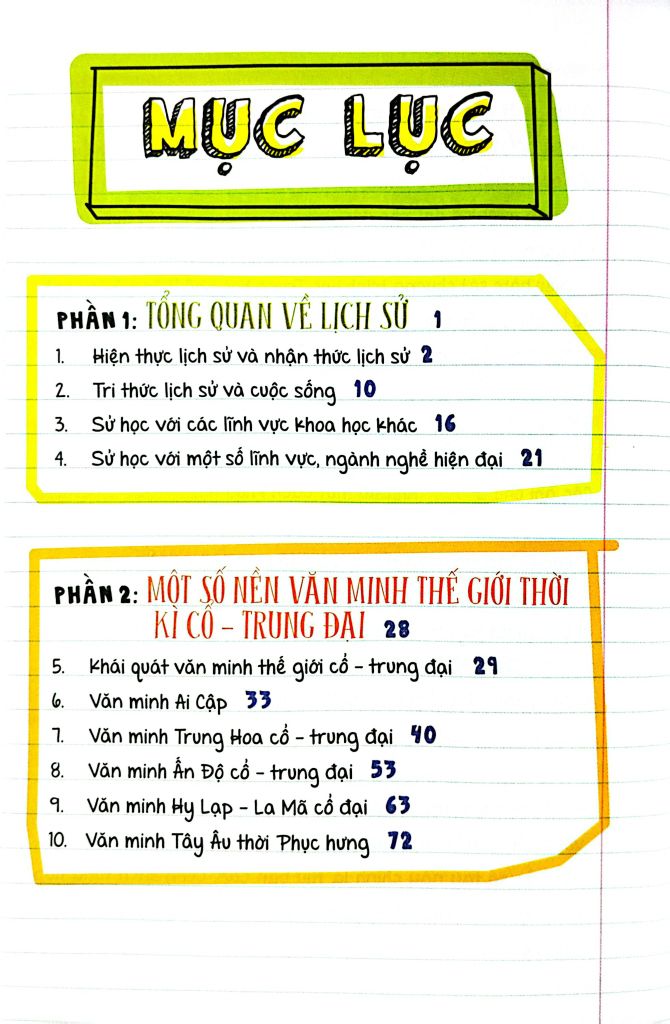 MỤC LỤC
PHẦN 1: TỔNG QUAN VỀ LỊCH SỬ 1
1. Hiện thực lịch sử và nhận thức lịch sử 2
2. Tri thức lịch sử và cuộc sống 10
3. Sử học với các lĩnh vực khoa học khác 16
4. Sử học với một số lĩnh vực, ngành nghề hiện đại 21
PHẦN 2: MỘT SỐ NỀN VĂN MINH THẾ GIỚI THỜI
KÌ CỔ – TRUNG ĐẠI 28
5. Khái quát văn minh thế giới cổ – trung đại 29
6. Văn minh Ai Cập 33
7. Văn minh Trung Hoa cổ – trung đại 40
8. Văn minh Ấn Độ cổ – trung đại 53
9. Văn minh Hy Lạp – La Mã cổ đại 63
10. Văn minh Tây Âu thời Phục hưng 72